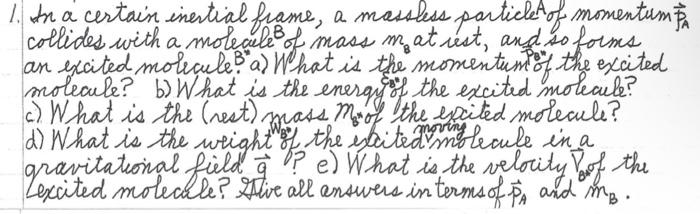 1. In a certain inertial frame, a massless particle A of momentum p⃗_A
collides with a molecule B of mass m_B at rest, and so forms
an excited molecule B*. a) What is the momentum p⃗_B* of the excited
molecule? b) What is the energy ε_B* of the excited molecule?
c) What is the (rest) mass m_B* of the excited molecule?
d) What is the weight W_B* of the excited moving molecule in a
gravitational field g⃗? e) What is the velocity v⃗_B* of the
excited molecule? Give all answers in terms of p⃗_A and m_B.